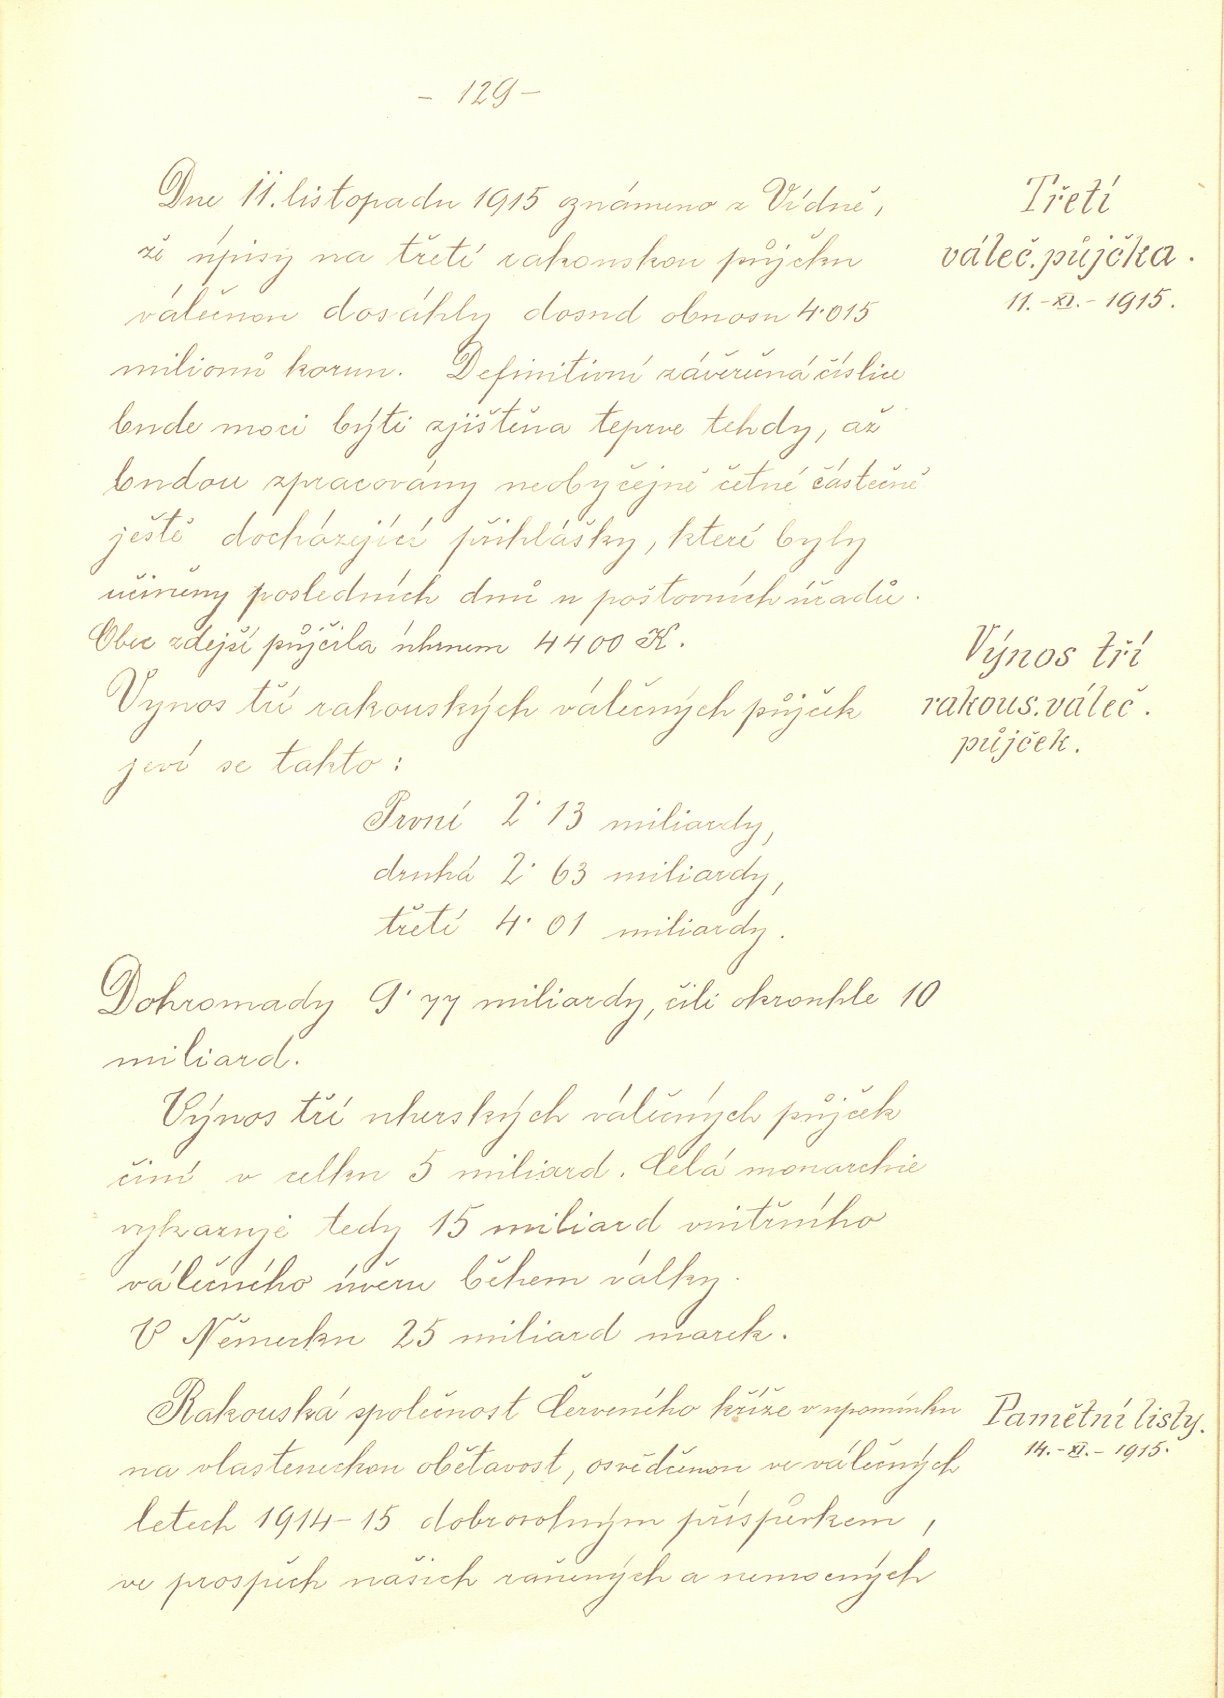 - 129 -
Dne 11. listopadu 1915 oznámeno z Vídně,
že úpisy na třetí rakouskou půjčku
válečnou dosáhly dosud obnosu 4·015
milionů korun. Definitivní závěrečná číslice
bude moci býti zjištěna teprve tehdy, až
budou zpracovány neobyčejně četné částečně
ještě docházející přihlášky, které byly
učiněny posledních dnů u poštovních úřadů.
Obec zdejší půjčila úhrnem 4400 K.
Třetí
váleč. půjčka.
11.-XI.-1915.
Výnos tří rakouských válečných půjček
jeví se takto:
První 2·13 miliardy,
druhá 2·63 miliardy,
třetí 4·01 miliardy.
Dohromady 9·77 miliardy, čili okrouhle 10
miliard.
Výnos tří
rakous. váleč.
půjček.
Výnos tří uherských válečných půjček
činí v celku 5 miliard. Celá monarchie
vykazuje tedy 15 miliard vnitřního
válečného úvěru během války.
V Německu 25 miliard marek.
Rakouská společnost Červeného kříže v upomínku
na vlasteneckou obětavost, osvědčenou ve válečných
letech 1914-15 dobrovolným příspěvkem,
ve prospěch našich raněných a nemocných
Pamětní listy.
14.-XI.-1915.